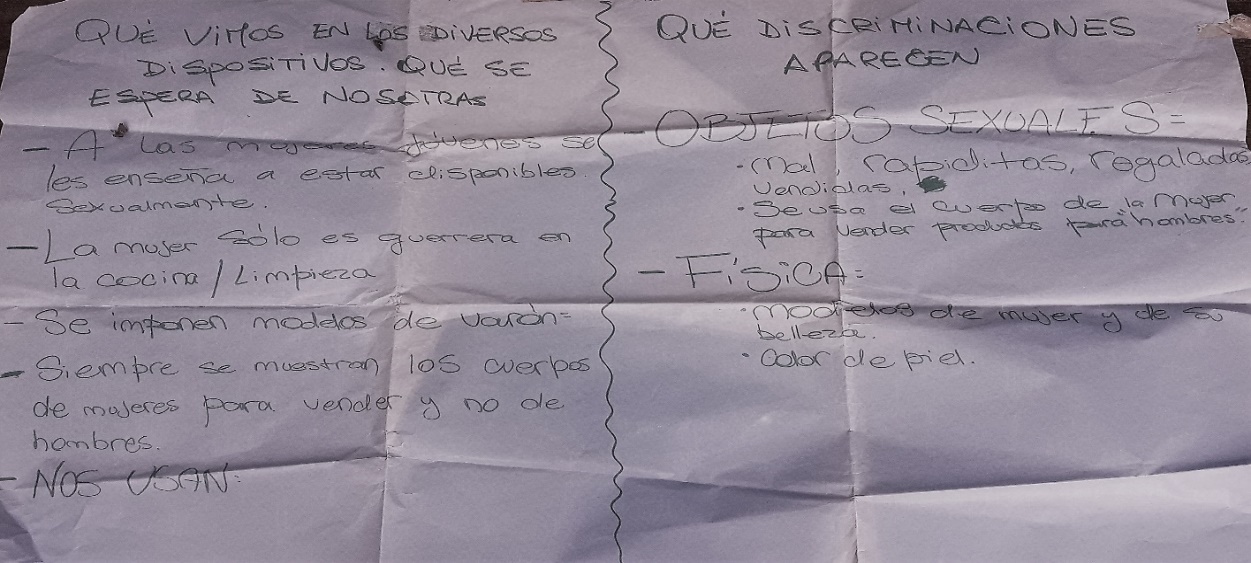 QUÉ VIMOS EN LOS DIVERSOS
DISPOSITIVOS. QUÉ SE
ESPERA DE NOSOTRAS
- A las mujeres jóvenes se
les enseña a estar disponibles
sexualmente.
- La mujer sólo es guerrera en
la cocina / Limpieza
- Se imponen modelos de varón=
- Siempre se muestran los cuerpos
de mujeres para vender y no de
hombres.
- NOS USAN:
QUÉ DISCRIMINACIONES
APARECEN
- OBJETOS SEXUALES =
• Mal, rapiditas, regaladas
vendidas,
• Se usa el cuerpo de la mujer
para vender productos para "hombres".
- FÍSICA=
• modelos de mujer y de su
belleza.
• Color de piel.